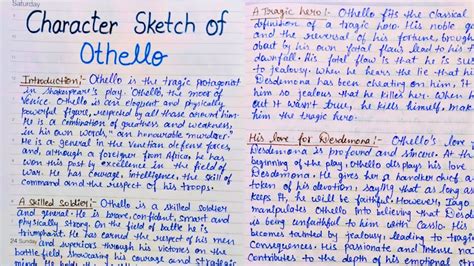 Saturday
Character Sketch of
Othello
Introduction:- Othello is the tragic protagonist
in Shakespeare's play. Othello, the moor of
Venice. Othello is an eloquent and physically
powerful figure, respected by all those around him.
He is a combination of greatness and weakness,
in his own words, "an honourable murderer".
He is a general in the Venetian defense forces
and, although a foreigner from Africa he has
won this post by excellence in the field of
war. He has courage, intelligence, the skill of
command and the respect of his troops.
A Skilled Soldier:- Othello is a skilled soldier
and general. He is brave, confident, smart and
physically strong. On the field of battle he is
triumphant. He has earned the respect of his men
24 Sunday
and superiors through his victories on the
battle field, showcasing his courage and strategic
mind. He holds the
A Tragic hero:- Othello fits the classical
definition of a tragic hero. His noble
and the reversal of his fortune, brough
about by his own fatal flaws lead to his
downfall. His fatal flaw is that he is sus
to jealousy. When he hears the lie that hi
Desdemona has been cheating on him, it
him so jealous that he kills her. When
out it wasn't true, he kills himself, mak
him the tragic hero.
His love for Desdemona:- Othello's love
Desdemona is profound and sincere. At t
beginning of the play, Othello displays his love
Desdemona. He gives her a handker chief a
token of his devotion, saying that as long as
keeps it, he will be faithful. However, Iago
manipulates Othello into believing that Desde
is being unfaithful to him with Cassio. His
becomes tainted by jealousy, leading to tragic
Consequences. His passionate and intense no
Contributes to the depth of his emotional st